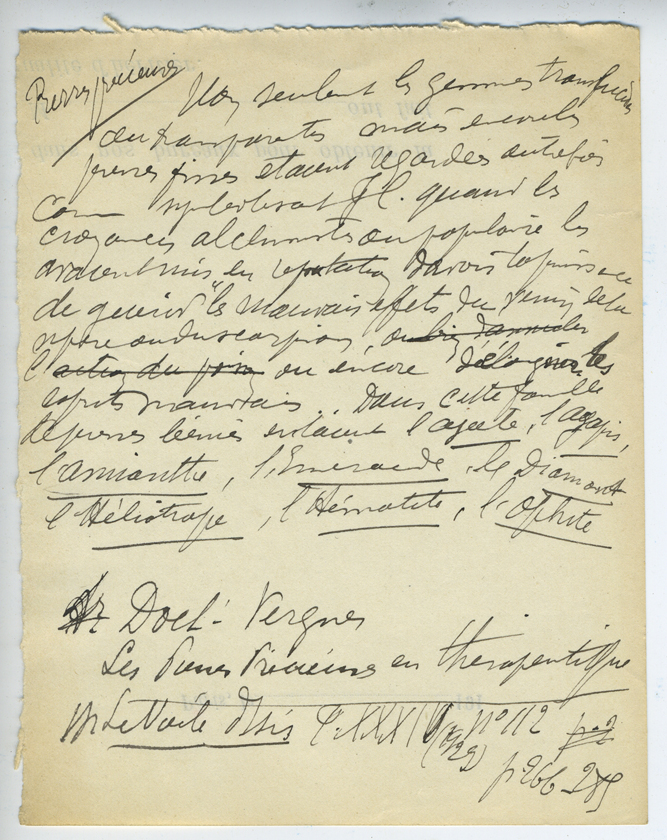 Pierres précieuses
Non seulement les gemmes translucides
ou transparentes mais encore les
pierres fines étaient regardées autrefois
comme symbolisant J.C. quand les
croyances alchimistes ou populaires les
avaient mis en réputation d'avoir la puissance
de guérir "les mauvais effets du venin de la
vipère ou du scorpion, ou bien d'annuler
l'action du poison ou encore d'éloigner les
esprits mauvais... Dans cette famille
de pierres bénies entraient l'agate, l'agapis,
l'amianthe, l'Emeraude, le Diamant
l'Héliotrope, l'Hématite, l'Ophite
Doct. Vergnes
Les Pierres Précieuses en thérapentique
in Le Voile d'Isis T. XXXIV n° 112
(1929)
p. 266-285